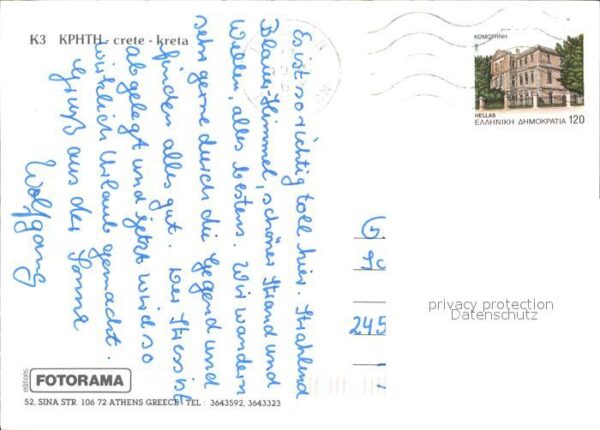 K3 ΚΡΗΤΗ - crete - kreta
ΚΟΜΟΤΗΝΗ
HELLAS
ΕΛΛΗΝΙΚΗ ΔΗΜΟΚΡΑΤΙΑ 120
Es ist so richtig toll hier. Strahlend
Blauer Himmel, schöner Strand und
Wellen, alles bestens. Wir wandern
sehr gerne durch die Gegend und
finden alles gut. Der Stress ist
abgelegt und jetzt wird so
wirklich Urlaub gemacht.
Gruß aus der Sonne
Wolfgang
G
245
privacy protection
Datenschutz
editions
FOTORAMA
52, SINA STR. 106 72 ATHENS GREECE TEL : 3643592, 3643323